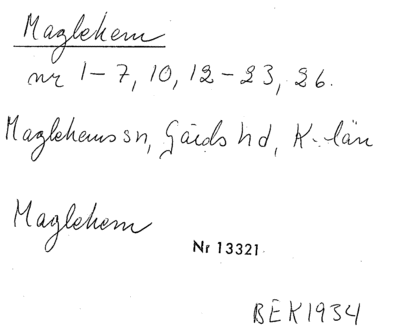 Maglehem
nr 1-7, 10, 12-23, 26.
Maglehems sn, Gärds hd, K-län
Maglehem
Nr 13321
BEK1934